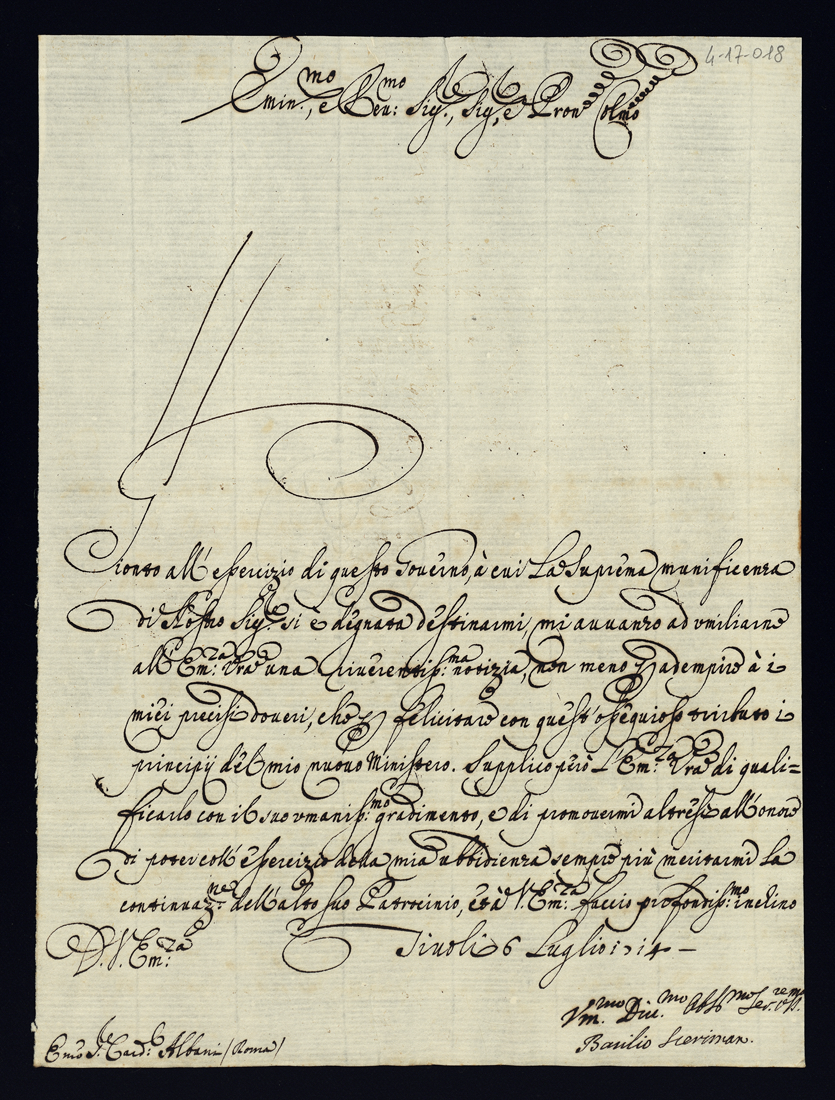 4-17-018
Emin.mo, e Reu:mo Sig.r, Sig.r, e Pron Colmo
Gionto all'essercizio di questo Gouerno, à cui La Suprema munificenza
di Nostro Sig.re si è degnata destinarmi, mi auuanzo ad vmiliarne
all'Em:za Vra una riuerentiss:ma notizia, non meno p adempire à i
miei precisi doueri, che p felicitare con quest'ossequioso tributo i
principij del mio nuouo Ministero. Supplico però L'Em:za Vra di quali=
ficarlo con il suo vmaniss:mo gradimento, e di promouermi altresì all'onore
di poter coll'essercizio della mia ubbidienza sempre più meritarmi La
continuaz:ne dell'alto suo Patrocinio, et à V. Em:za faccio profondiss:mo inchino
D. V. Em:za
Tiuoli 6 Luglio 1714 –
Vm.mo Diu.mo Obb.mo Ser.re
Basilio Sceriman.
Emo S.r Card:l Albani / Roma /